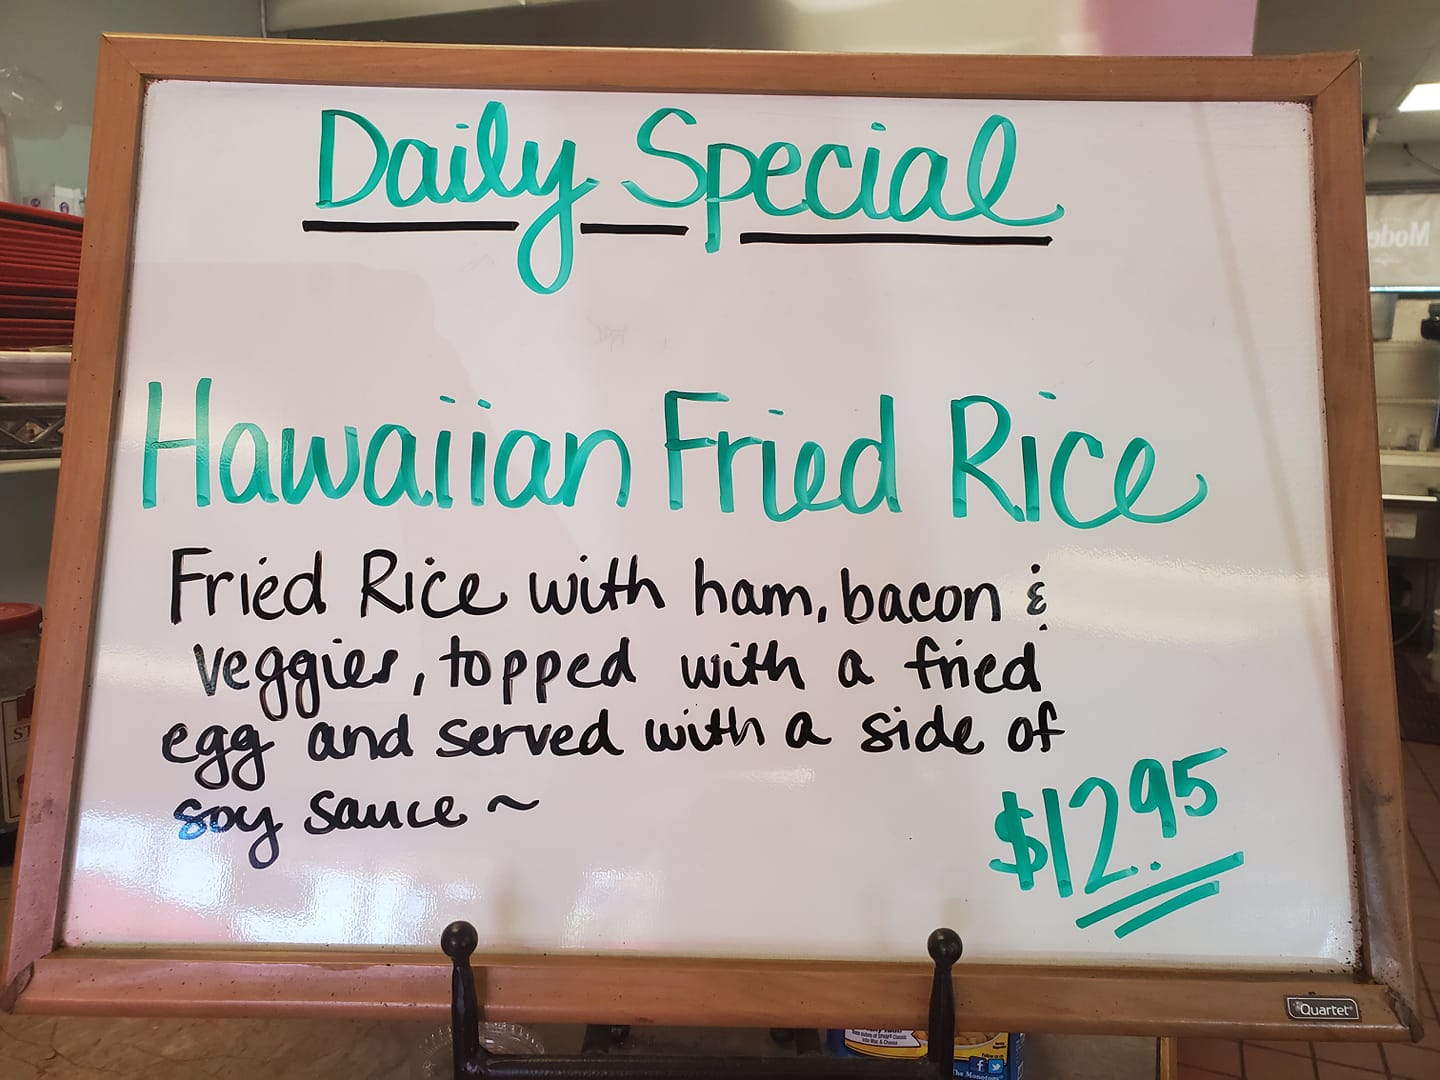 Daily Special
Hawaiian Fried Rice
Fried Rice with ham, bacon &
veggies, topped with a fried
egg and served with a side of
soy sauce ~
$12.95
Quartet